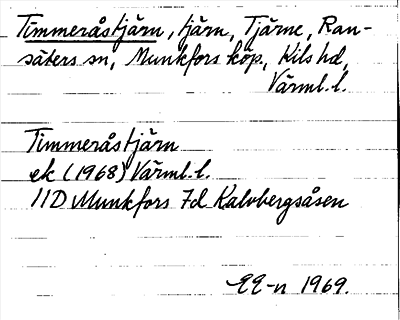 Timmeråstjärn, tjärn, Tjärne, Ran-
säters sn, Munkfors köp., Kils hd,
Värml.l.
Timmeråstjärn
ek (1968) Värml.l.
11D Munkfors 7d Kalvbergsåsen
EE-n 1969.